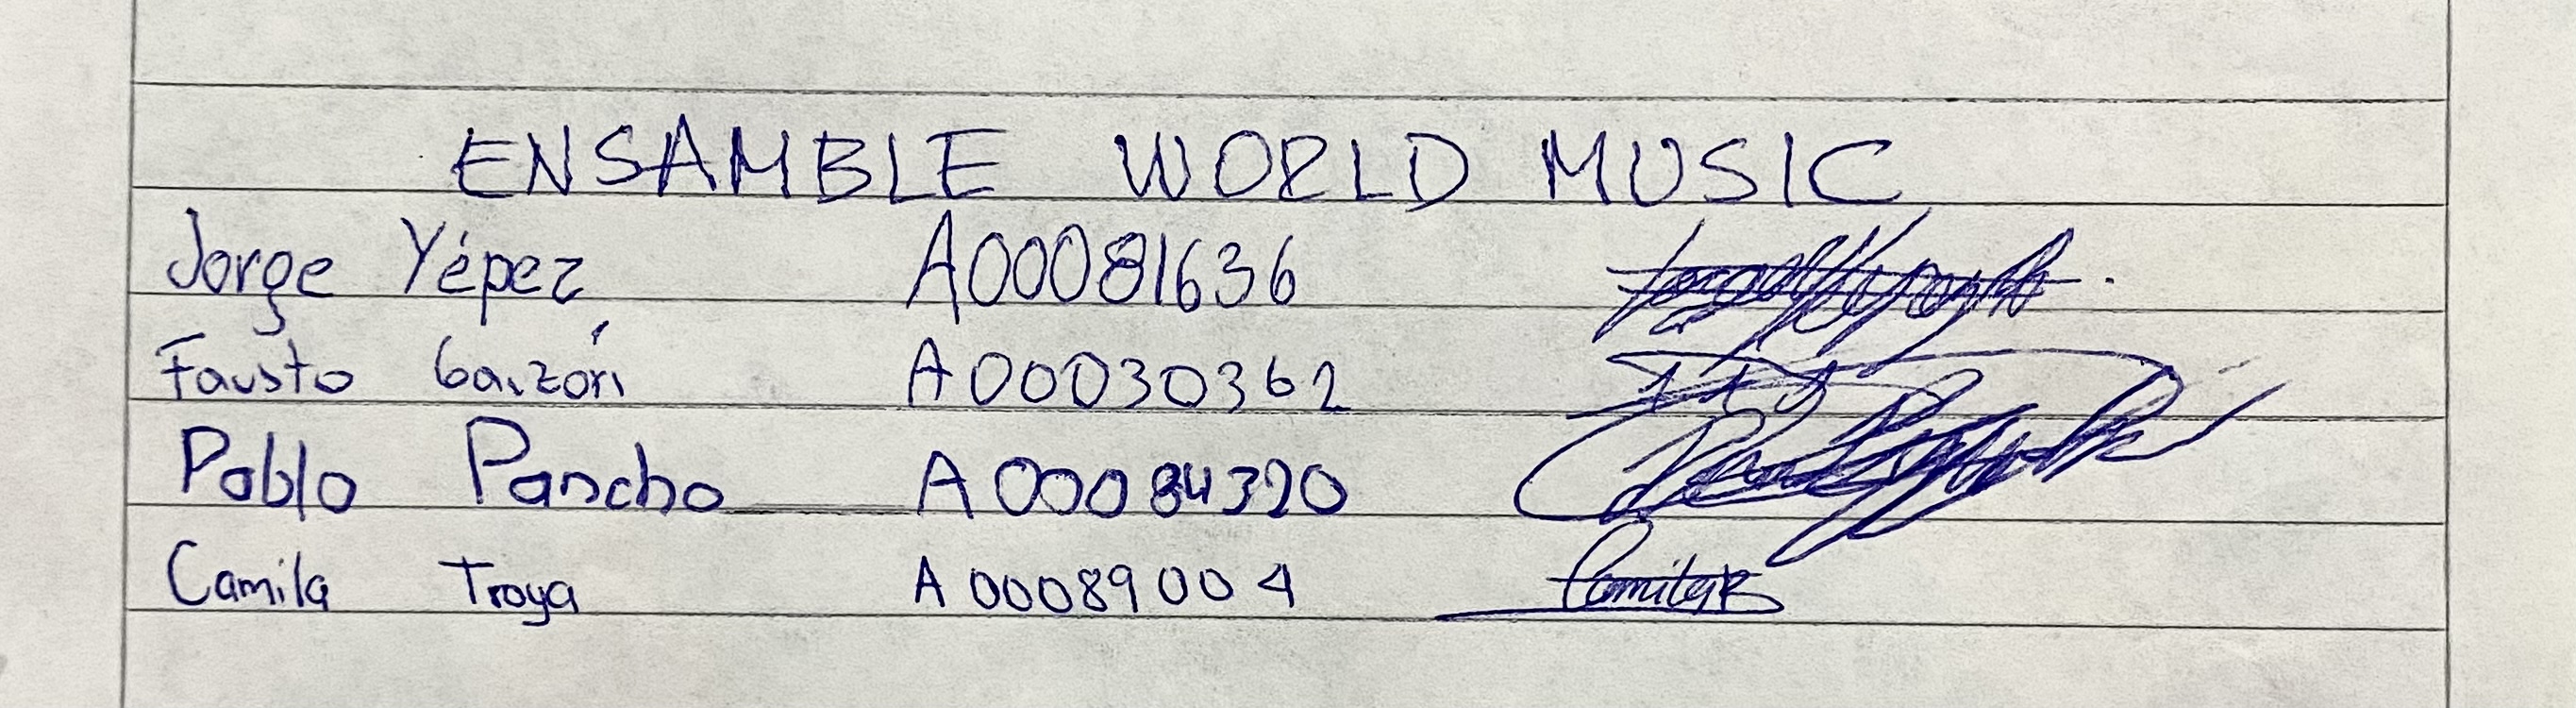 ENSAMBLE WORLD MUSIC
Jorge Yépez A00081636
Fausto Garzón A00030362
Pablo Pancho A00084320
Camila Troya A00089004